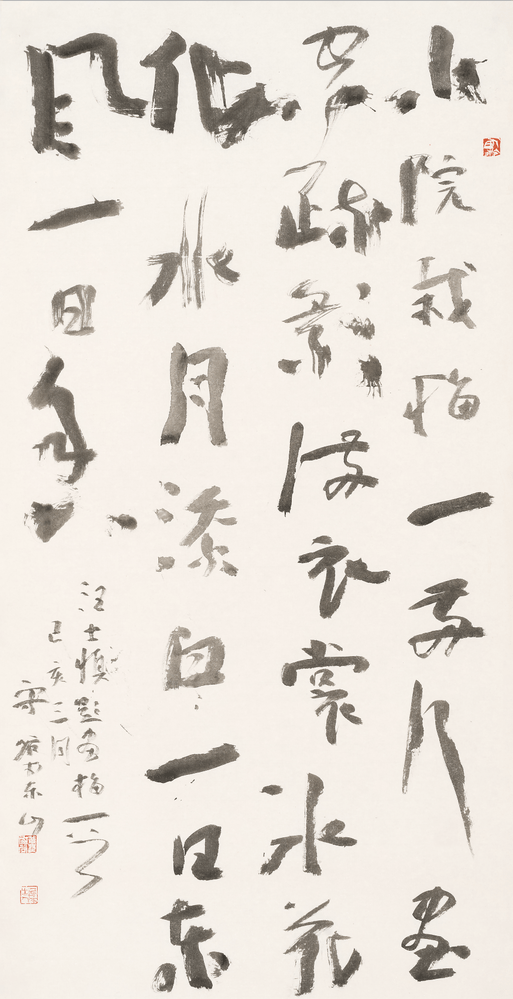 小院栽梅一两行画
空疏影满衣裳冰花
化水月添白一日东
风一日香
汪士慎题画梅一首
己亥三月
东山